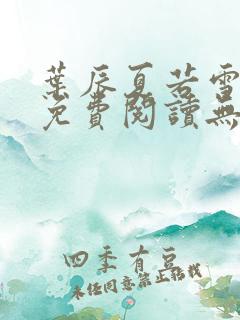 葉辰夏若雪
免費閱讀無
四季有豆
未經同意禁止轉載